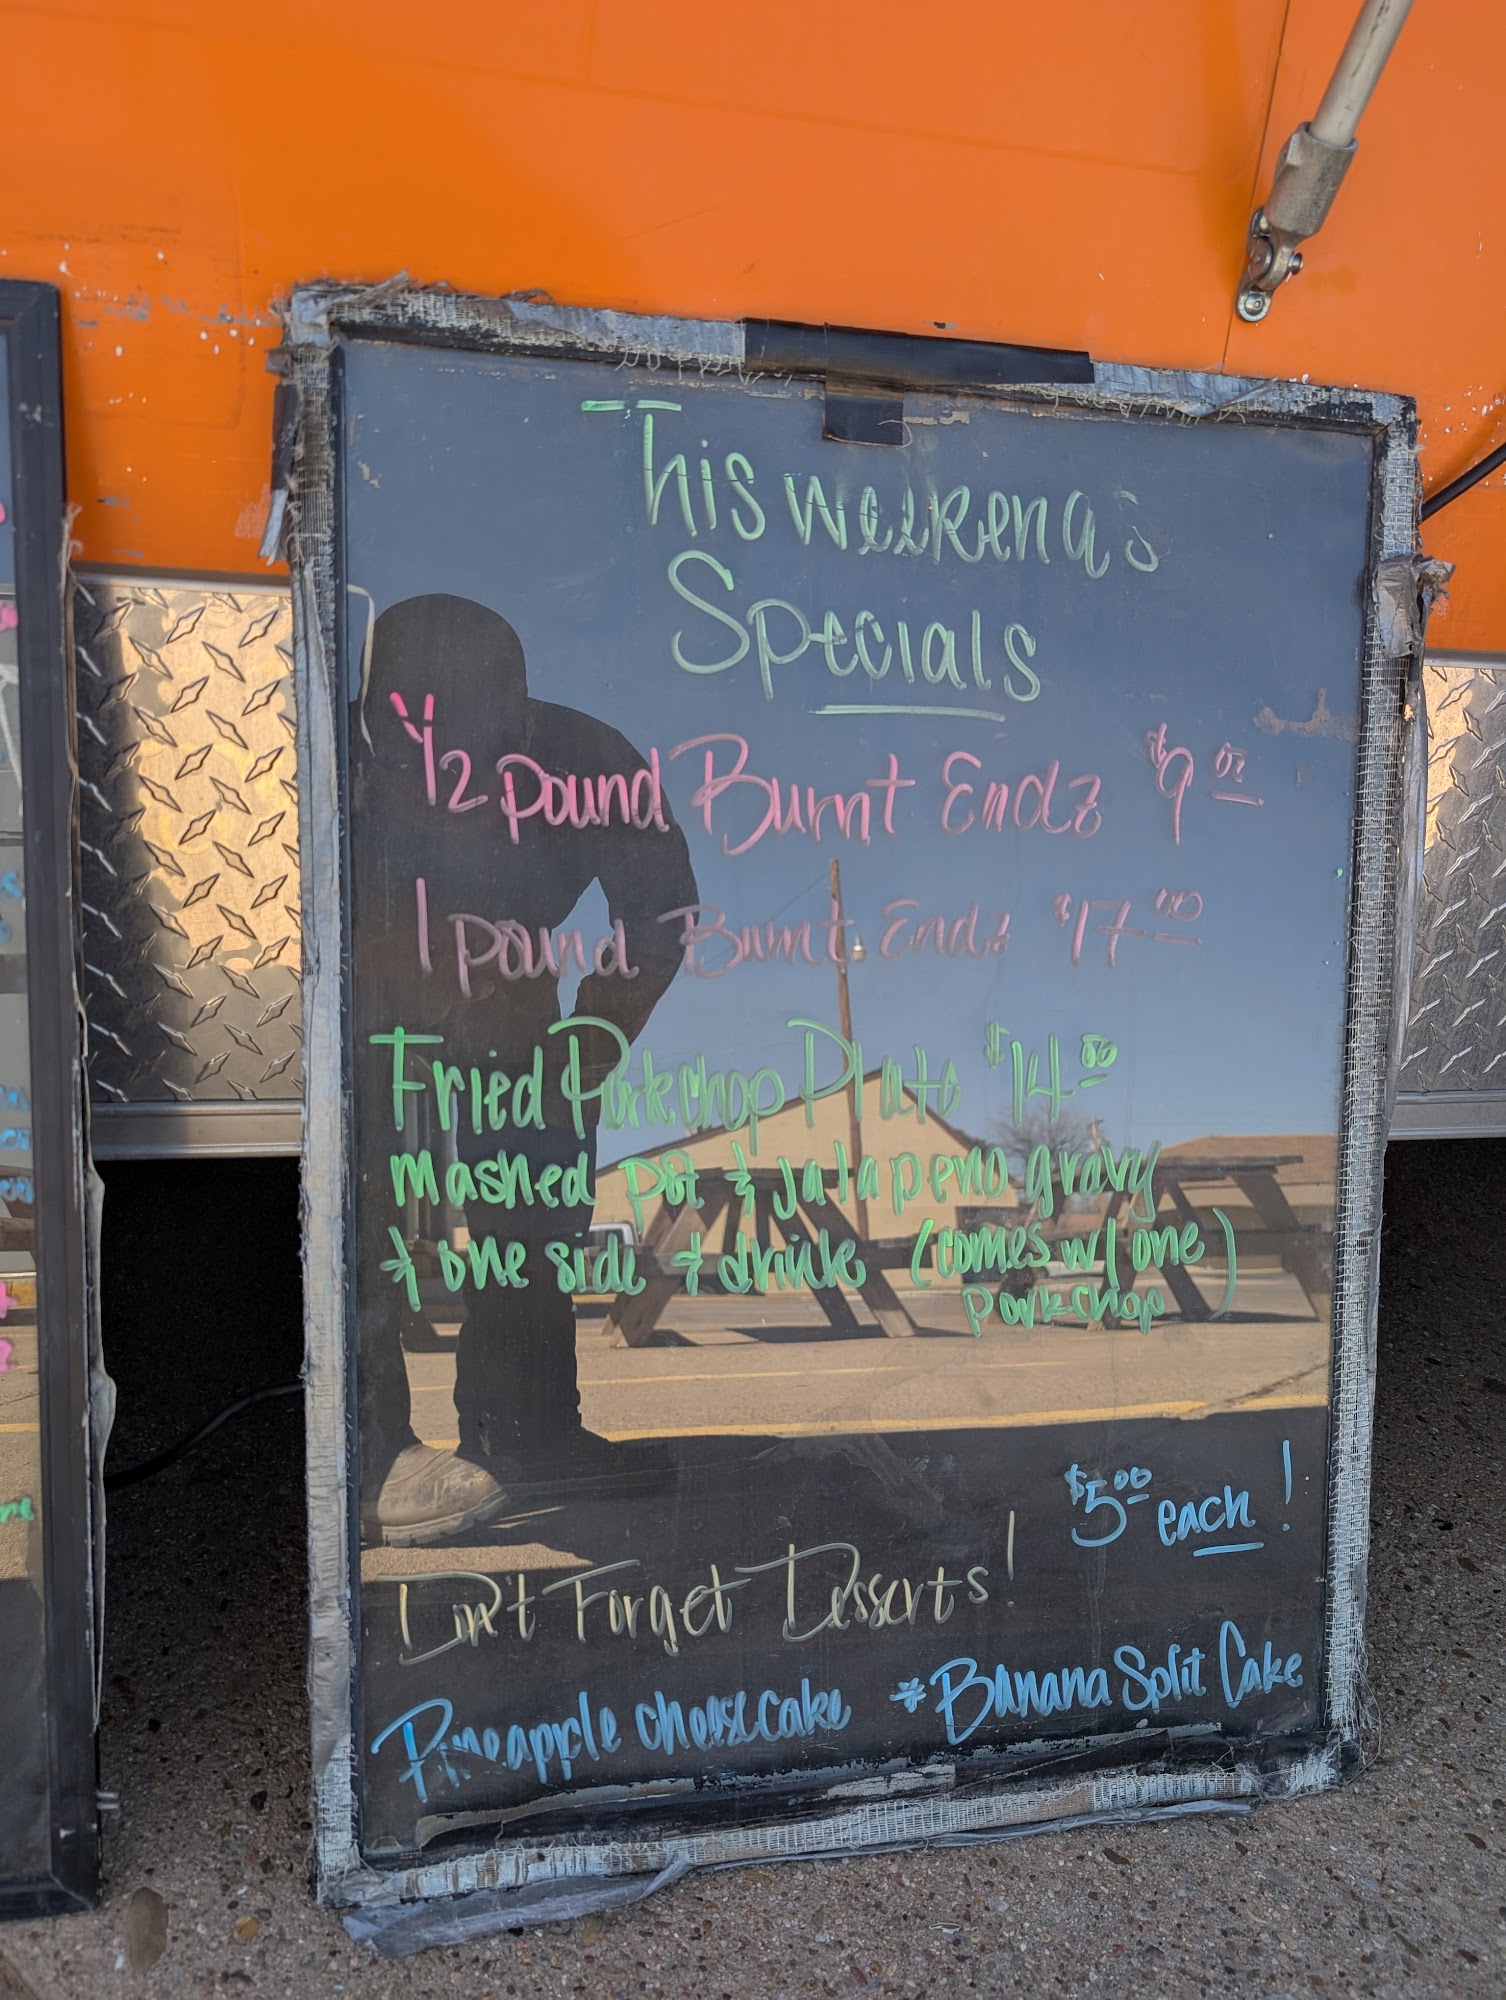 This Weekend's
Specials
1/2 pound Burnt Endz $9.00
1 pound Burnt Endz $17.00
Fried Porkchop Plate $14.00
mashed pot & jalapeno gravy
& one side & drink (comes w/ one
porkchop)
$5.00 each!
Don't Forget Desserts!
Pineapple cheesecake * Banana Split Cake